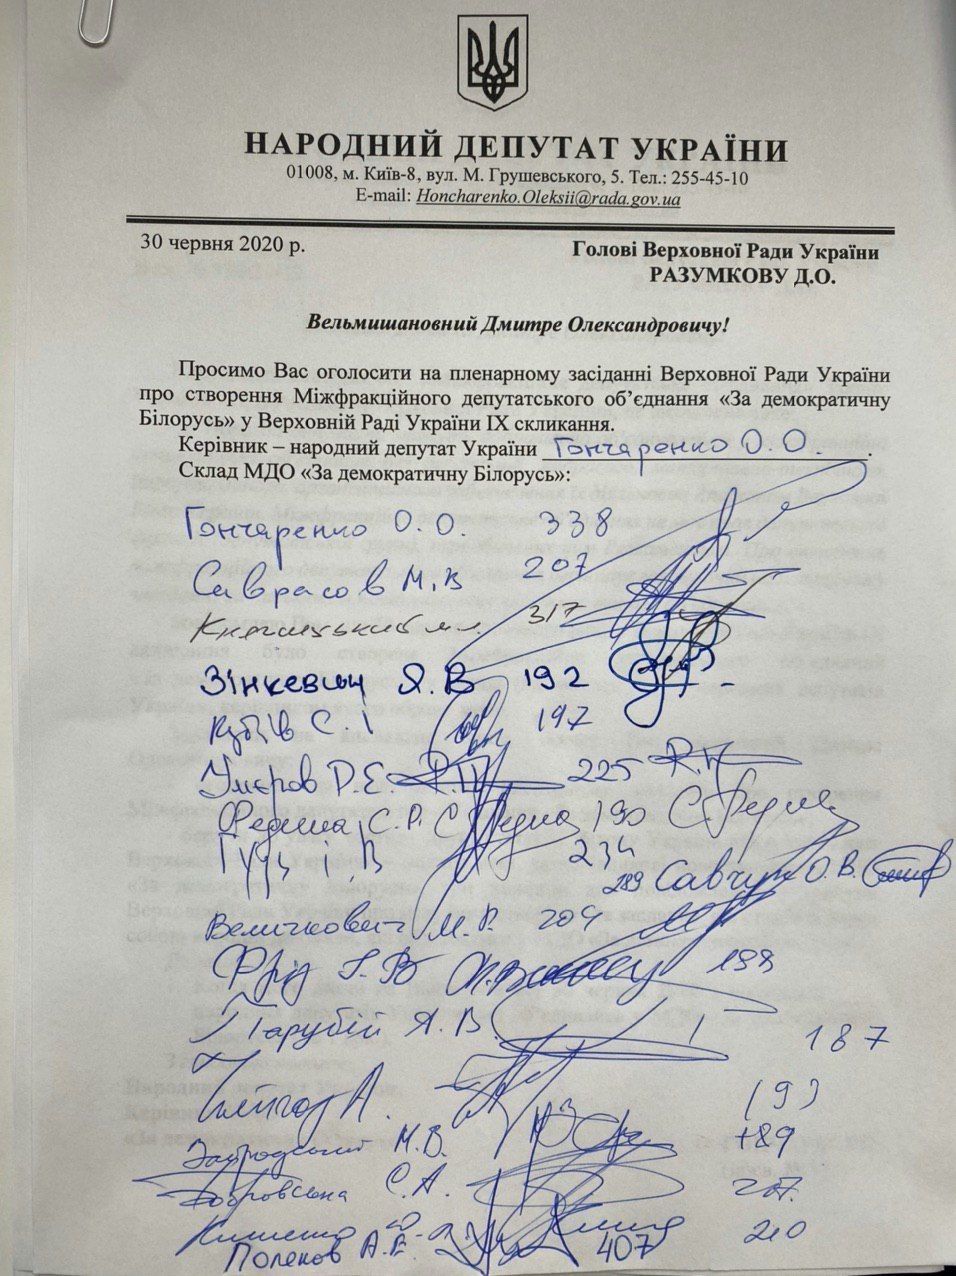 НАРОДНИЙ ДЕПУТАТ УКРАЇНИ
01008, м. Київ-8, вул. М. Грушевського, 5. Тел.: 255-45-10
E-mail: Honcharenko.Oleksii@rada.gov.ua
30 червня 2020 р.
Голові Верховної Ради України
РАЗУМКОВУ Д.О.
Вельмишановний Дмитре Олександровичу!
Просимо Вас оголосити на пленарному засіданні Верховної Ради України
про створення Міжфракційного депутатського об’єднання «За демократичну
Білорусь» у Верховній Раді України IX скликання.
Керівник – народний депутат України Гончаренко О.О.
Склад МДО «За демократичну Білорусь»:
Гончаренко О.О. 338
Саврасов М.В 207
Княжицький М.Л. 317
Зінкевич Я.В 192
Кубів С.І 197
Умєров Р.Е. 225
Федина С.Р. 190
Гузь І.В 234
289 Савчук О.В.
Величкович М.Р. 204
Фріз І.В 199
Парубій Я.В. 187
М.В. 189
С.А.
210
А.Е. 407